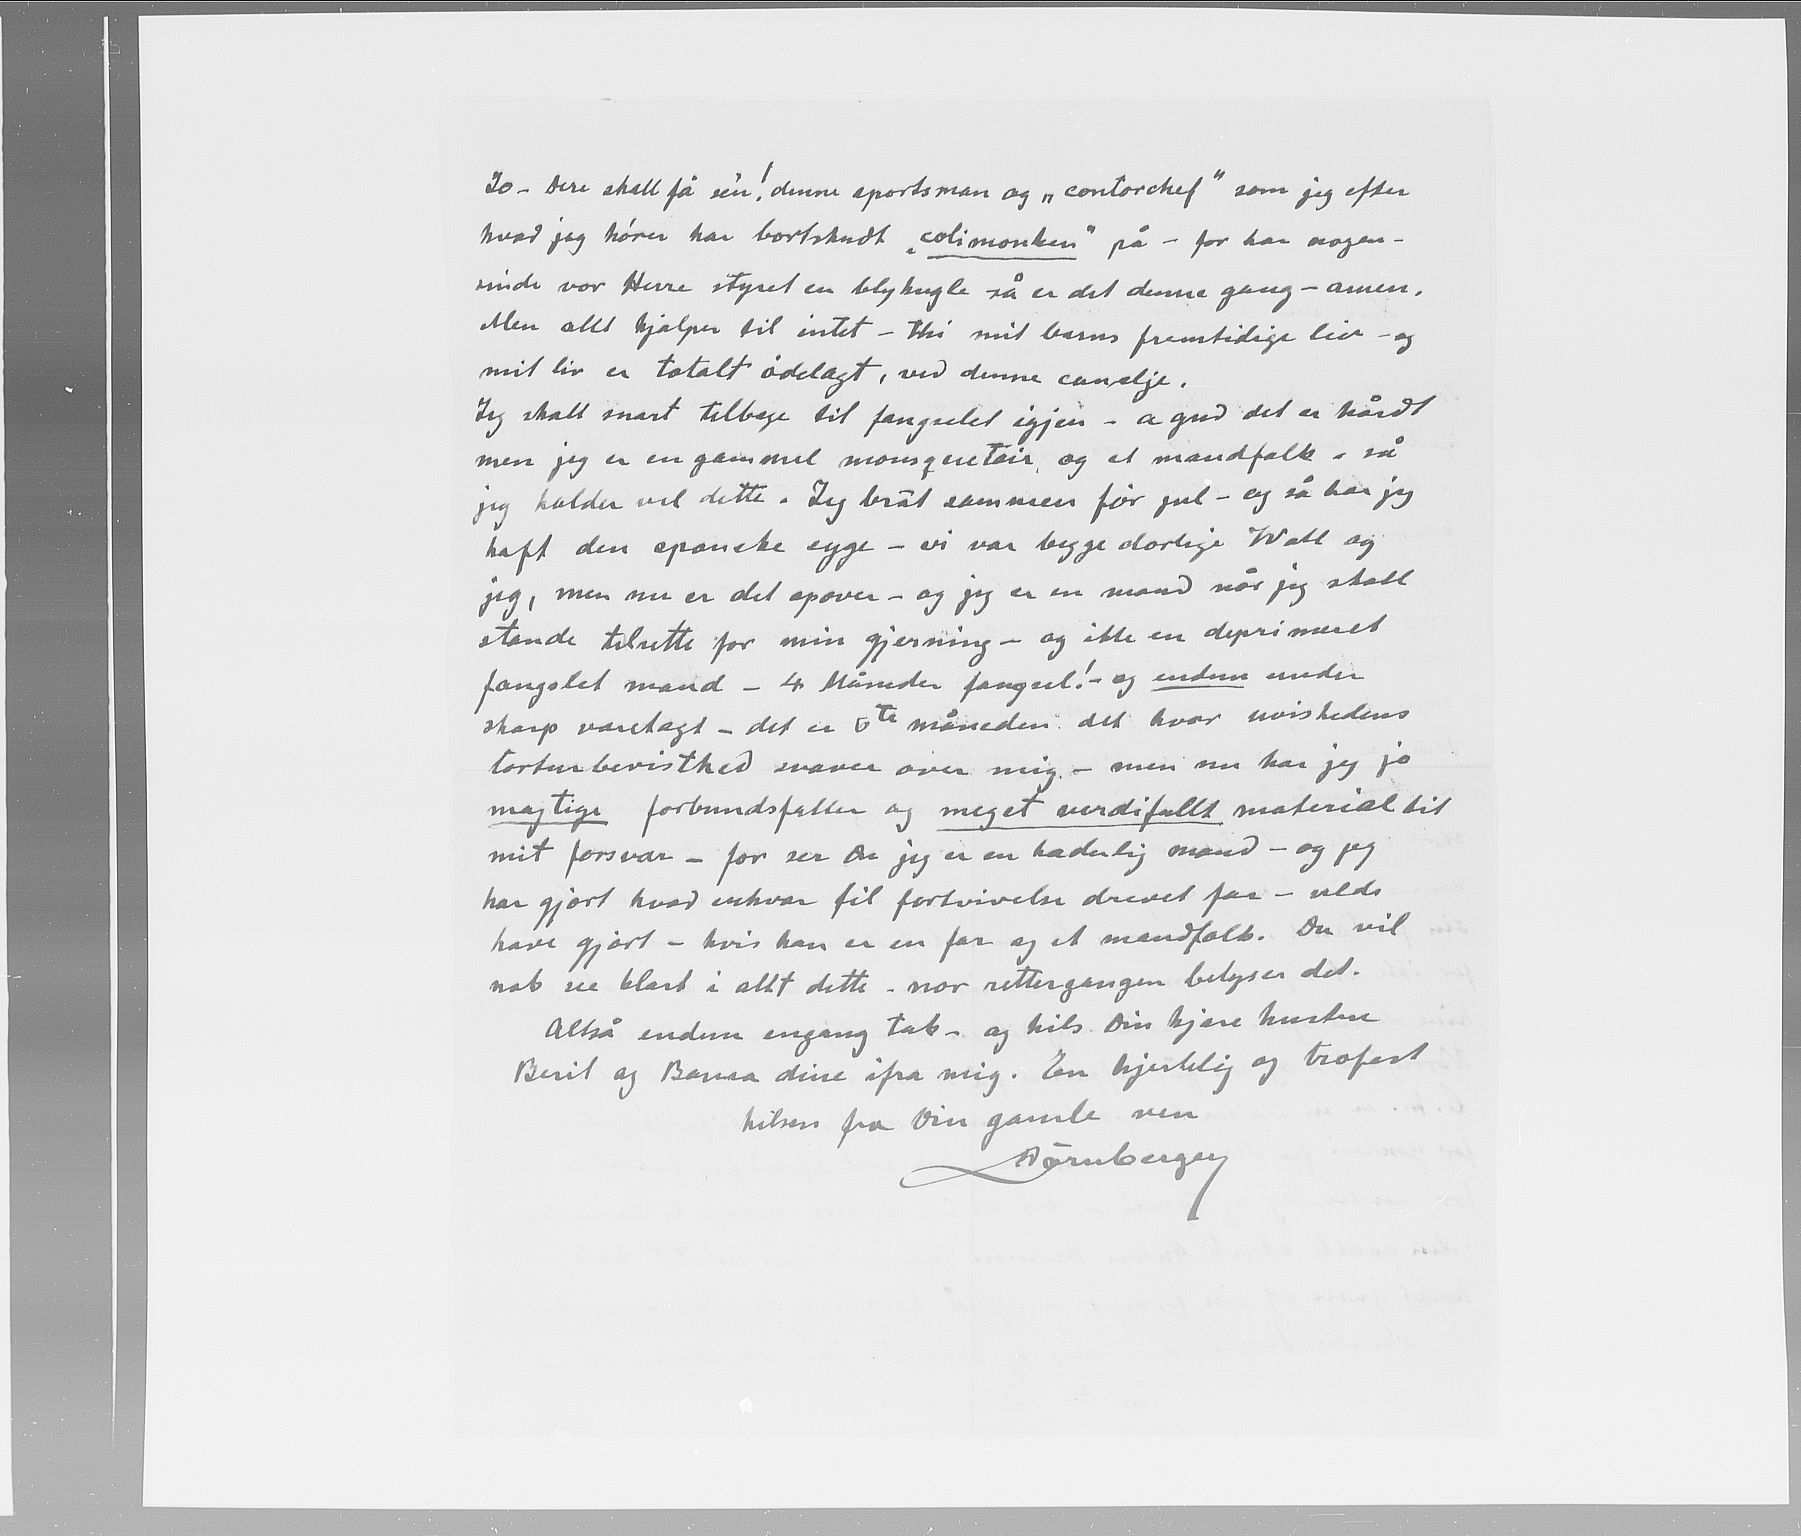 Jo – Dere skall få sén! denne sportsman og „contorchef" som jeg efter
hvad jeg hører har bortskudt „colimonken" på – for har nogen-
sinde vor Herre styret en blykugle så er det denne gang – amen.
Men allt hjælper til intet – thi mit barns fremtidige liv – og
mit liv er totalt ødelagt, ved denne canalje.
Jeg skall snart tilbage til fængselet igjen – a gud det er hårdt
men jeg er en gammel mousquetair, og et mandfolk – så
jeg holder vel dette. Jeg bråt sammen før jul – og så har jeg
haft den spanske syge – vi var begge dårlige Wall og
jeg, men nu er det apover – og jeg er en mand når jeg skall
stande tilrette for min gjerning – og ikke en deprimeret
fængslet mand – 4 Måneder fængsel! – og endnu under
skarp varetægt – det er 5te måneden det hvor uvishedens
torturbevisthed svæver over mig – men nu har jeg jo
mægtige forbundsfæller og meget verdifullt material til
mit forsvar – for ser Du jeg er en hæderlig mand – og jeg
har gjort hvad enhver til fortvivelse drevet far – vilde
have gjort – hvis han er en far og et mandfolk. Du vil
nok see klart i allt dette – nor rettergangen belyser det.
Altså endnu engang tak – og hils Din kjære hustru
Berit og Barna dine ifra mig. En hjertelig og trofast
hilsen fra Din gamle ven
Dørnberger